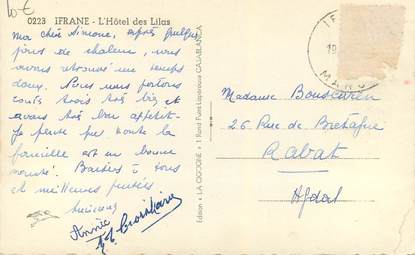 10€
0223 IFRANE - L'Hôtel des Lilas
Ma chère Simone, après quelques
jours de chaleur, nous
avons retrouvé un temps
doux. Nous nous portons
tous trois très bien et
avons très bon appétit.
Je pense que toute la
famille est en bonne
santé. Baisers à tous
et meilleures pensées
Annie
Edition « LA CIGOGNE » 1 Rond Point Lapérouse CASABLANCA
MAROC
Madame Bouscaren
26 Rue de Bretagne
Rabat
Agdal